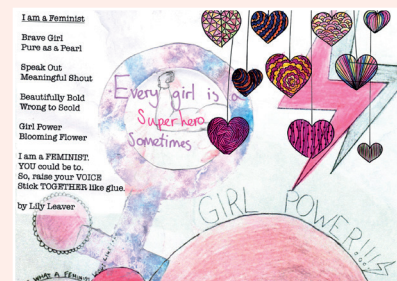 I am a Feminist
Brave Girl
Pure as a Pearl
Speak Out
Meaningful Shout
Beautifully Bold
Wrong to Scold
Girl Power
Blooming Flower
I am a FEMINIST.
YOU could be to.
So, raise your VOICE
Stick TOGETHER like glue.
by Lily Leaver
Every girl is a
Super hero
Sometimes
GIRL POWER!!!
WHAT A FEMINIST